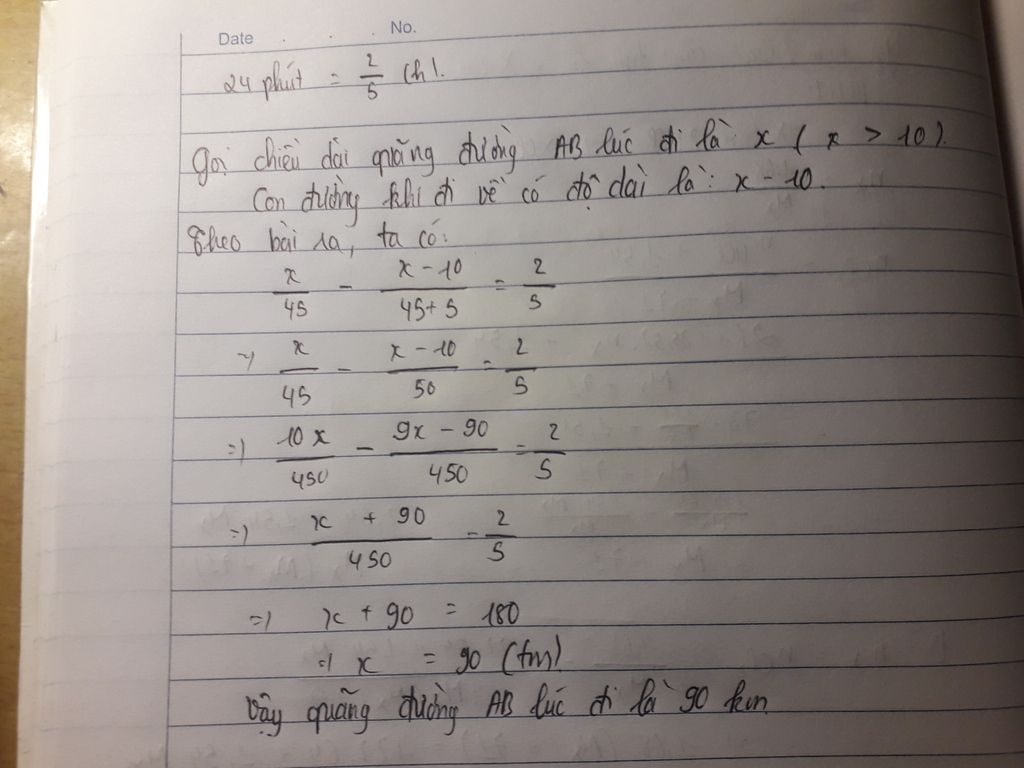 Date . . . No.
24 phút = 2/5 (h).
Gọi chiều dài quãng đường AB lúc đi là x ( x > 10).
Con đường khi đi về có độ dài là: x - 10.
Theo bài ra, ta có:
x/45 - (x - 10)/(45 + 5) = 2/5
=> x/45 - (x - 10)/50 = 2/5
=> 10x/450 - (9x - 90)/450 = 2/5
=> (x + 90)/450 = 2/5
=> x + 90 = 180
=> x = 90 (tm)
Vậy quãng đường AB lúc đi là 90 km